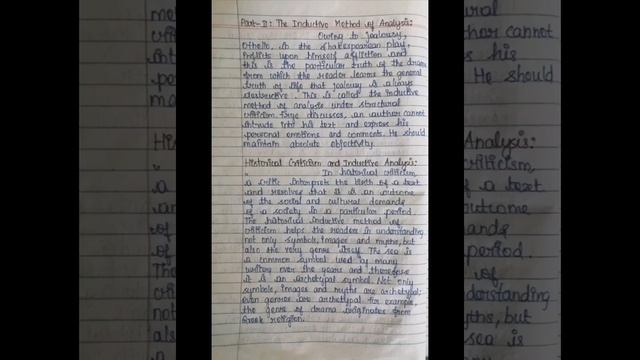 Part-II: The Inductive Method of Analysis:
Owing to jealousy,
Othello, in the Shakespearean play,
inflicts upon himself affliction and
this is the particular truth of the drama
from which the reader learns the general
truth of life that jealousy is always
destructive. This is called the inductive
method of analysis under structural
criticism. Frye discusses, an author cannot
intrude into his text and express his
personal emotions and comments. He should
maintain absolute objectivity.
Historical Criticism and Inductive Analysis:
In historical criticism,
a critic interprets the birth of a text
and resolves that it is an outcome
of the social and cultural demands
of a society in a particular period.
The historical inductive method of
criticism helps the readers in understanding
not only symbols, images and myths, but
also the very genre itself. The sea is
a common symbol used by many
writers over the years and therefore
it is an archetypal symbol. Not only
symbols, images and myths are archetypal;
even genres are archetypal. For example,
the genre of drama originates from
Greek religion.